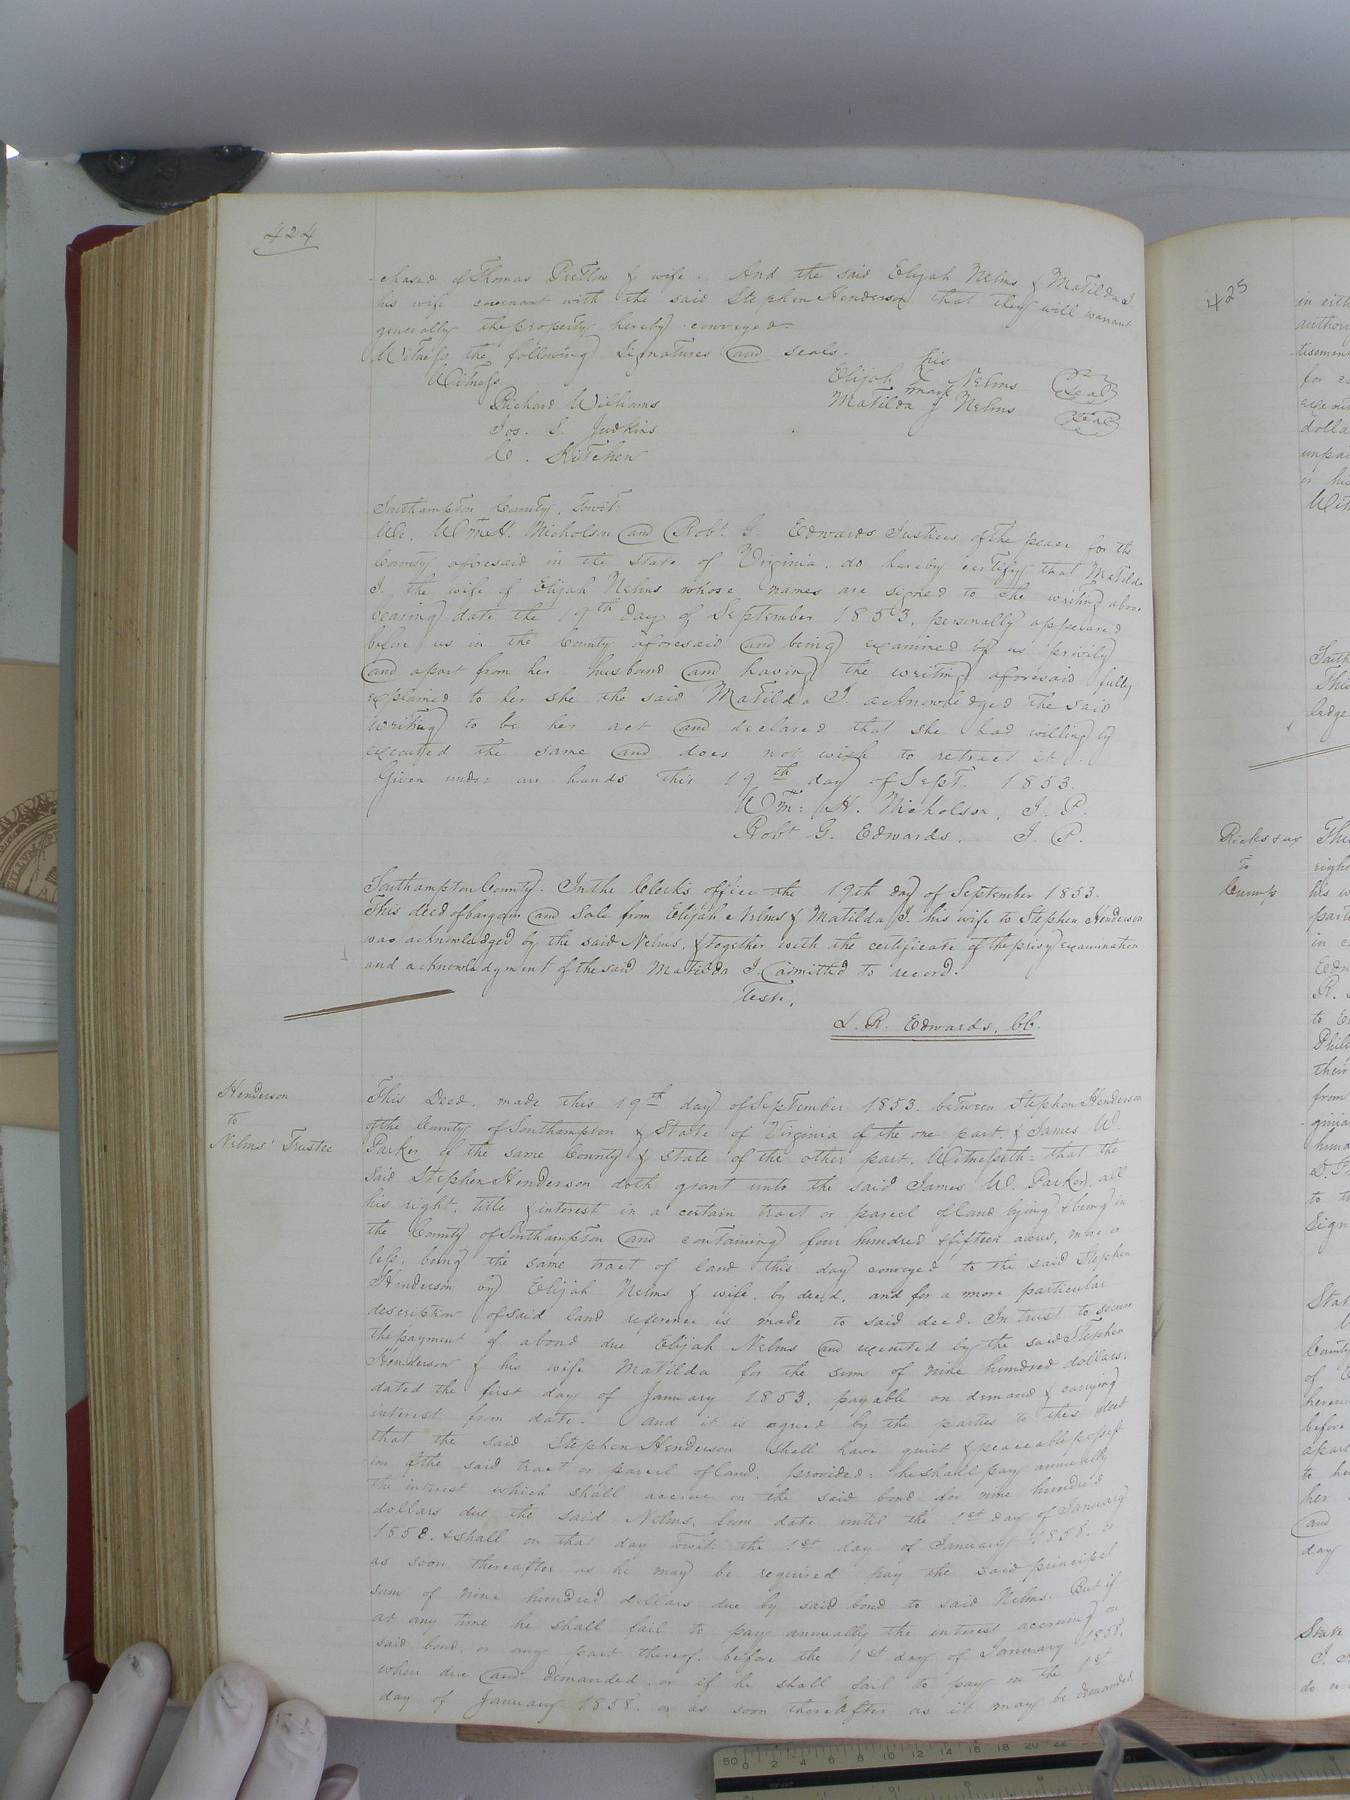 424
chased of Thomas Pretlow & wife. And the said Elijah Nelms & Matilda J
his wife covenant with the said Stephen Henderson that they will warrant
generally the property hereby conveyed.
Witness the following signatures and seals.
Witness
his
Elijah X Nelms (Seal)
mark
Matilda J Nelms (Seal)
Richard Williams
Jos. S. Judkins
C. Kitchen
Southampton County, Towit:
We, Wm. H. Nicholson and Robt. G. Edwards Justices of the peace for the
County aforesaid in the State of Virginia, do hereby certify that Matilda
J. the wife of Elijah Nelms whose names are signed to the writing above
bearing date the 19th day of September 1853, personally appeared
before us in the County aforesaid and being examined by us privily
and apart from her husband and having the writing aforesaid fully
explained to her she the said Matilda J. acknowledged the said
writing to be her act and declared that she had willingly
executed the same and does not wish to retract it.
Given under our hands this 19th day of Sept. 1853.
Wm: H. Nicholson, J. P.
Robt G. Edwards. J. P.
Southampton County. In the Clerk's office the 19th day of September 1853.
This deed of bargain and Sale from Elijah Nelms & Matilda J. his wife to Stephen Henderson
was acknowledged by the said Nelms, & together with the certificate of the privy examination
and acknowledgment of the said Matilda J. admitted to record.
Teste,
L. R. Edwards, CC.
Henderson
to
Nelms' Trustee
This Deed, made this 19th day of September 1853. between Stephen Henderson
of the County of Southampton & State of Virginia of the one part, & James W.
Parker of the same County & State of the other part. Witnesseth: that the
Said Stephen Henderson doth grant unto the said James W. Parker, all
his right, title & interest in a certain tract or parcel of land lying & being in
the County of Southampton and containing four hundred & fifteen acres, more or
less, being the same tract of land this day conveyed to the said Stephen
Henderson by Elijah Nelms & wife, by deed, and for a more particular
description of said land reference is made to said deed. In trust to secure
the payment of a bond due Elijah Nelms and executed by the said Stephen
Henderson & his wife Matilda for the sum of nine hundred dollars,
dated the first day of January 1853, payable on demand & carrying
interest from date. And it is agreed by the parties to this deed
that the said Stephen Henderson shall have quiet & peaceable possess
ion of the said tract or parcel of land, provided: he shall pay annually
the interest which shall accrue on the said bond for nine hundred
dollars due the said Nelms, from date until the 1st day of January
1858. & shall on that day towit the 1st day of January 1858. or
as soon thereafter as he may be required pay the said principal
sum of nine hundred dollars due by said bond to said Nelms. But if
at any time he shall fail to pay annually the interest accruing on
said bond, or any part thereof, before the 1st day of January 1858,
when due and demanded, or if he shall fail to pay on the 1st
day of January 1858. or as soon thereafter as it may be demanded
425
Ricks & ux
to
Crump
in eith
tisement
for ca
dolla
unpai
or his
Wit
South
This
ledge
his w
part
in c
Edw
R.
to
Phil
their
from
ginia
to th
Sign
Stat
County
of V
before
apart
to he
her
and
day
State
J.
do
50 0 2 4 6 8 10 12 14 16 18 20 22